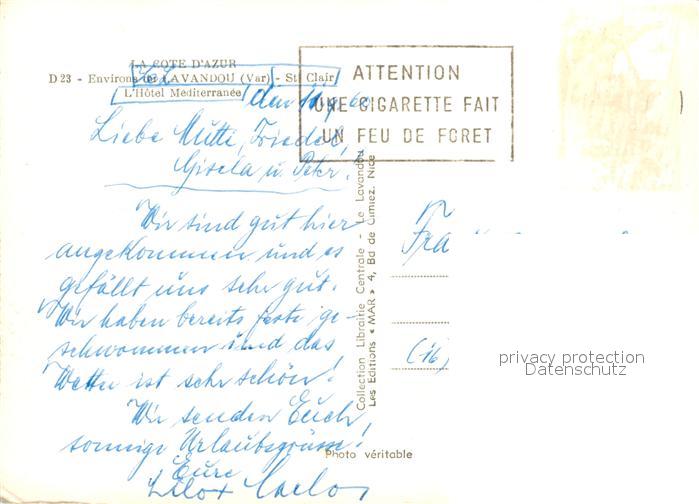 LA COTE D'AZUR
D 23 - Environs du LAVANDOU (Var) - St Clair
L'Hôtel Méditerranée
ATTENTION
UNE CIGARETTE FAIT
UN FEU DE FORET
den
Liebe Mutti, Friedel,
Gisela u. Peter!
Wir sind gut hier
angekommen und es
gefällt uns sehr gut.
Wir haben bereits feste ge-
schwommen und das
Wetter ist sehr schön!
Wir senden Euch
sonnige Urlaubsgrüsse!
Eure
Lilo + Carlo
Collection Librairie Centrale - Le Lavandou
Les Editions « MAR » 4, Bd de Cimiez, Nice
Fra
(16)
privacy protection
Datenschutz
Photo véritable